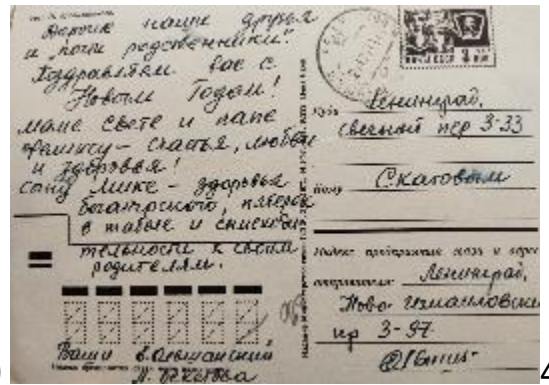 Дорогие наши друзья
и "почти родственники"!
Поздравляем вас с
Новым Годом!
маме Свете и папе
– счастья, любви
и здоровья!
сыну Мике – здоровья
богатырского, пятерок
в табеле и снисходи-
тельности к своим
родителям.
Ваши
Куда Ленинград,
Свечной пер 3-33
Кому Скатовым
Индекс предприятия связи и адрес
отправителя: Ленинград,
Ново-Измайловский
пр 3-97